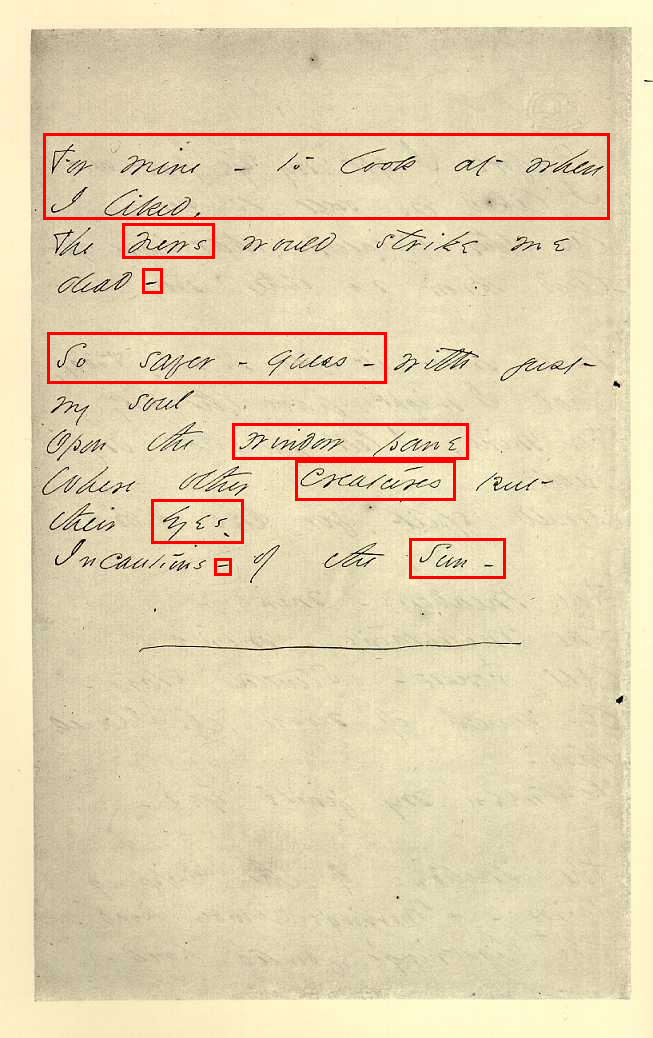 For mine - to look at when
I liked.
The news would strike me
dead -
So safer - guess - with just
my soul
Opon the window pane
Where other creatures put
their eyes.
Incautious - of the Sun -